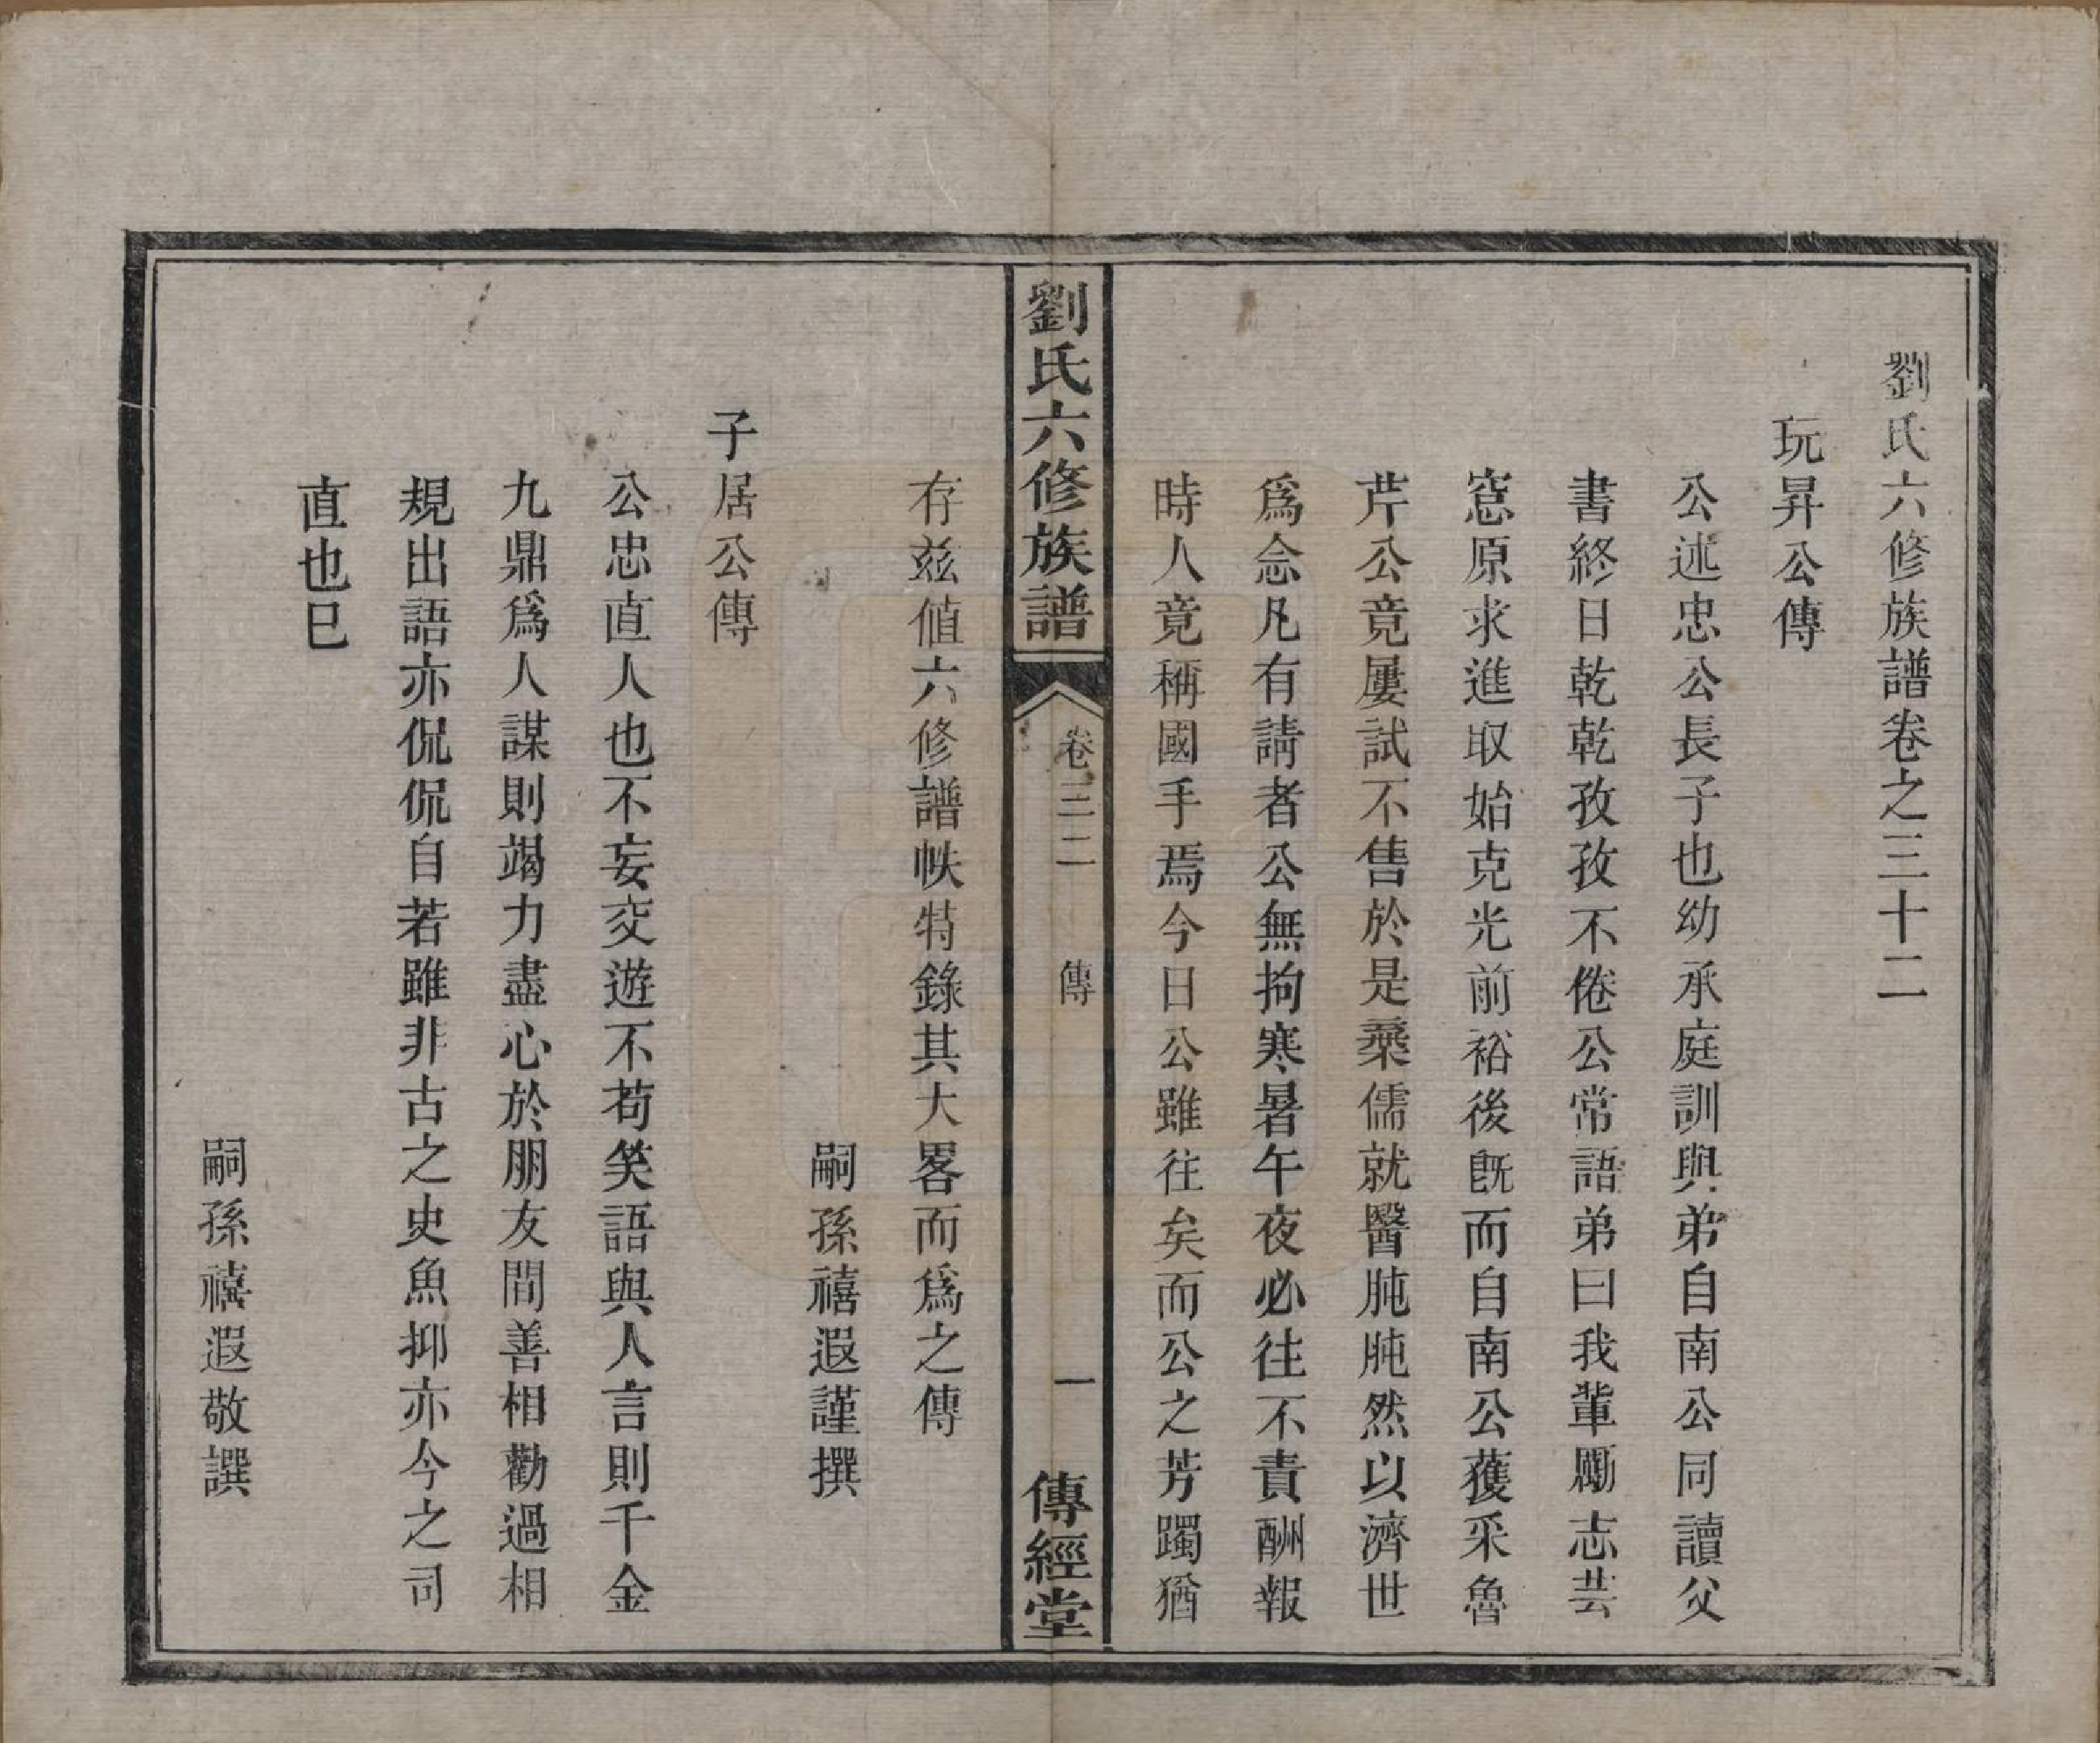 劉氏六修族譜卷之三十二
玩昇公傳
公述忠公長子也幼承庭訓與弟自南公同讀父
書終日乾乾孜孜不倦公常語弟曰我輩勵志芸
窓原求進取始克光前裕後旣而自南公獲采魯
芹公竟屢試不售於是棄儒就醫肫肫然以濟世
爲念凡有請者公無拘寒暑午夜必往不責酬報
時人竟稱國手焉今日公雖往矣而公之芳躅猶
劉氏六修族譜
卷三二
傳
一
傳經堂
存兹値六修譜帙特錄其大畧而爲之傳
嗣孫禧遐謹撰
子居公傳
公忠直人也不妄交遊不苟笑語與人言則千金
九鼎爲人謀則竭力盡心於朋友間善相勸過相
規出語亦侃侃自若雖非古之史魚抑亦今之司
直也巳
嗣孫禧遐敬譔